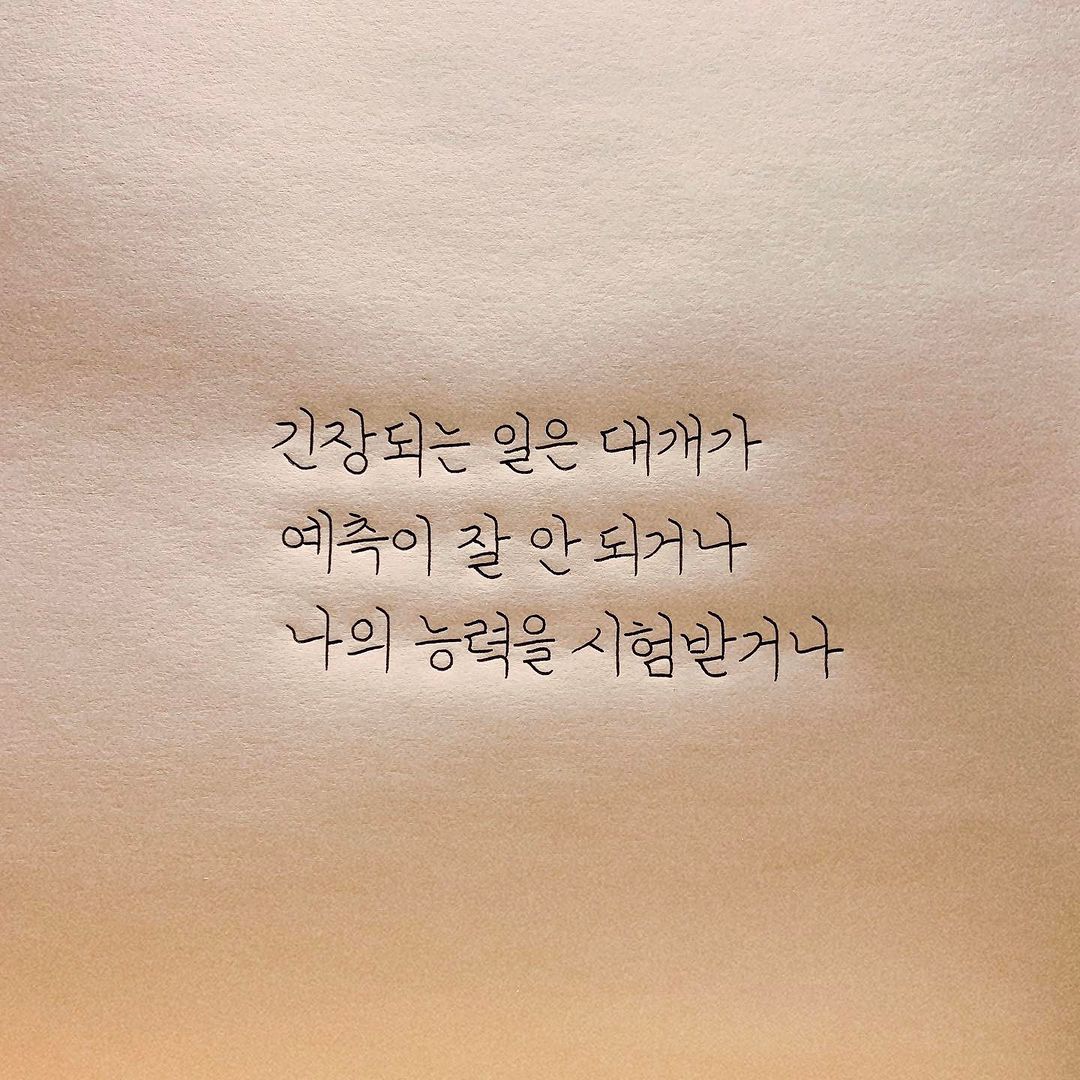 긴장되는 일은 대개가
예측이 잘 안 되거나
나의 능력을 시험받거나